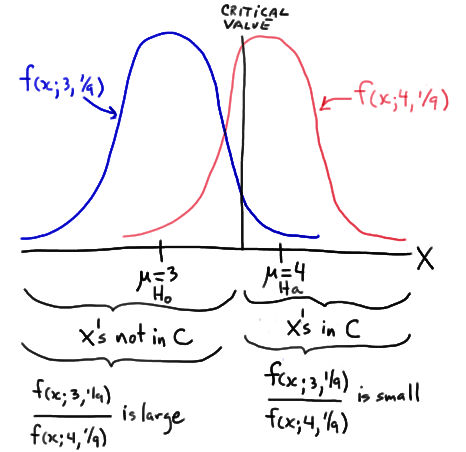 CRITICAL
VALUE
f(x; 3, 1/9)
f(x; 4, 1/9)
X
μ=3
H₀
μ=4
Ha
X's not in C
X's in C
f(x; 3, 1/9)
f(x; 4, 1/9)
is large
f(x; 3, 1/9)
f(x; 4, 1/9)
is small